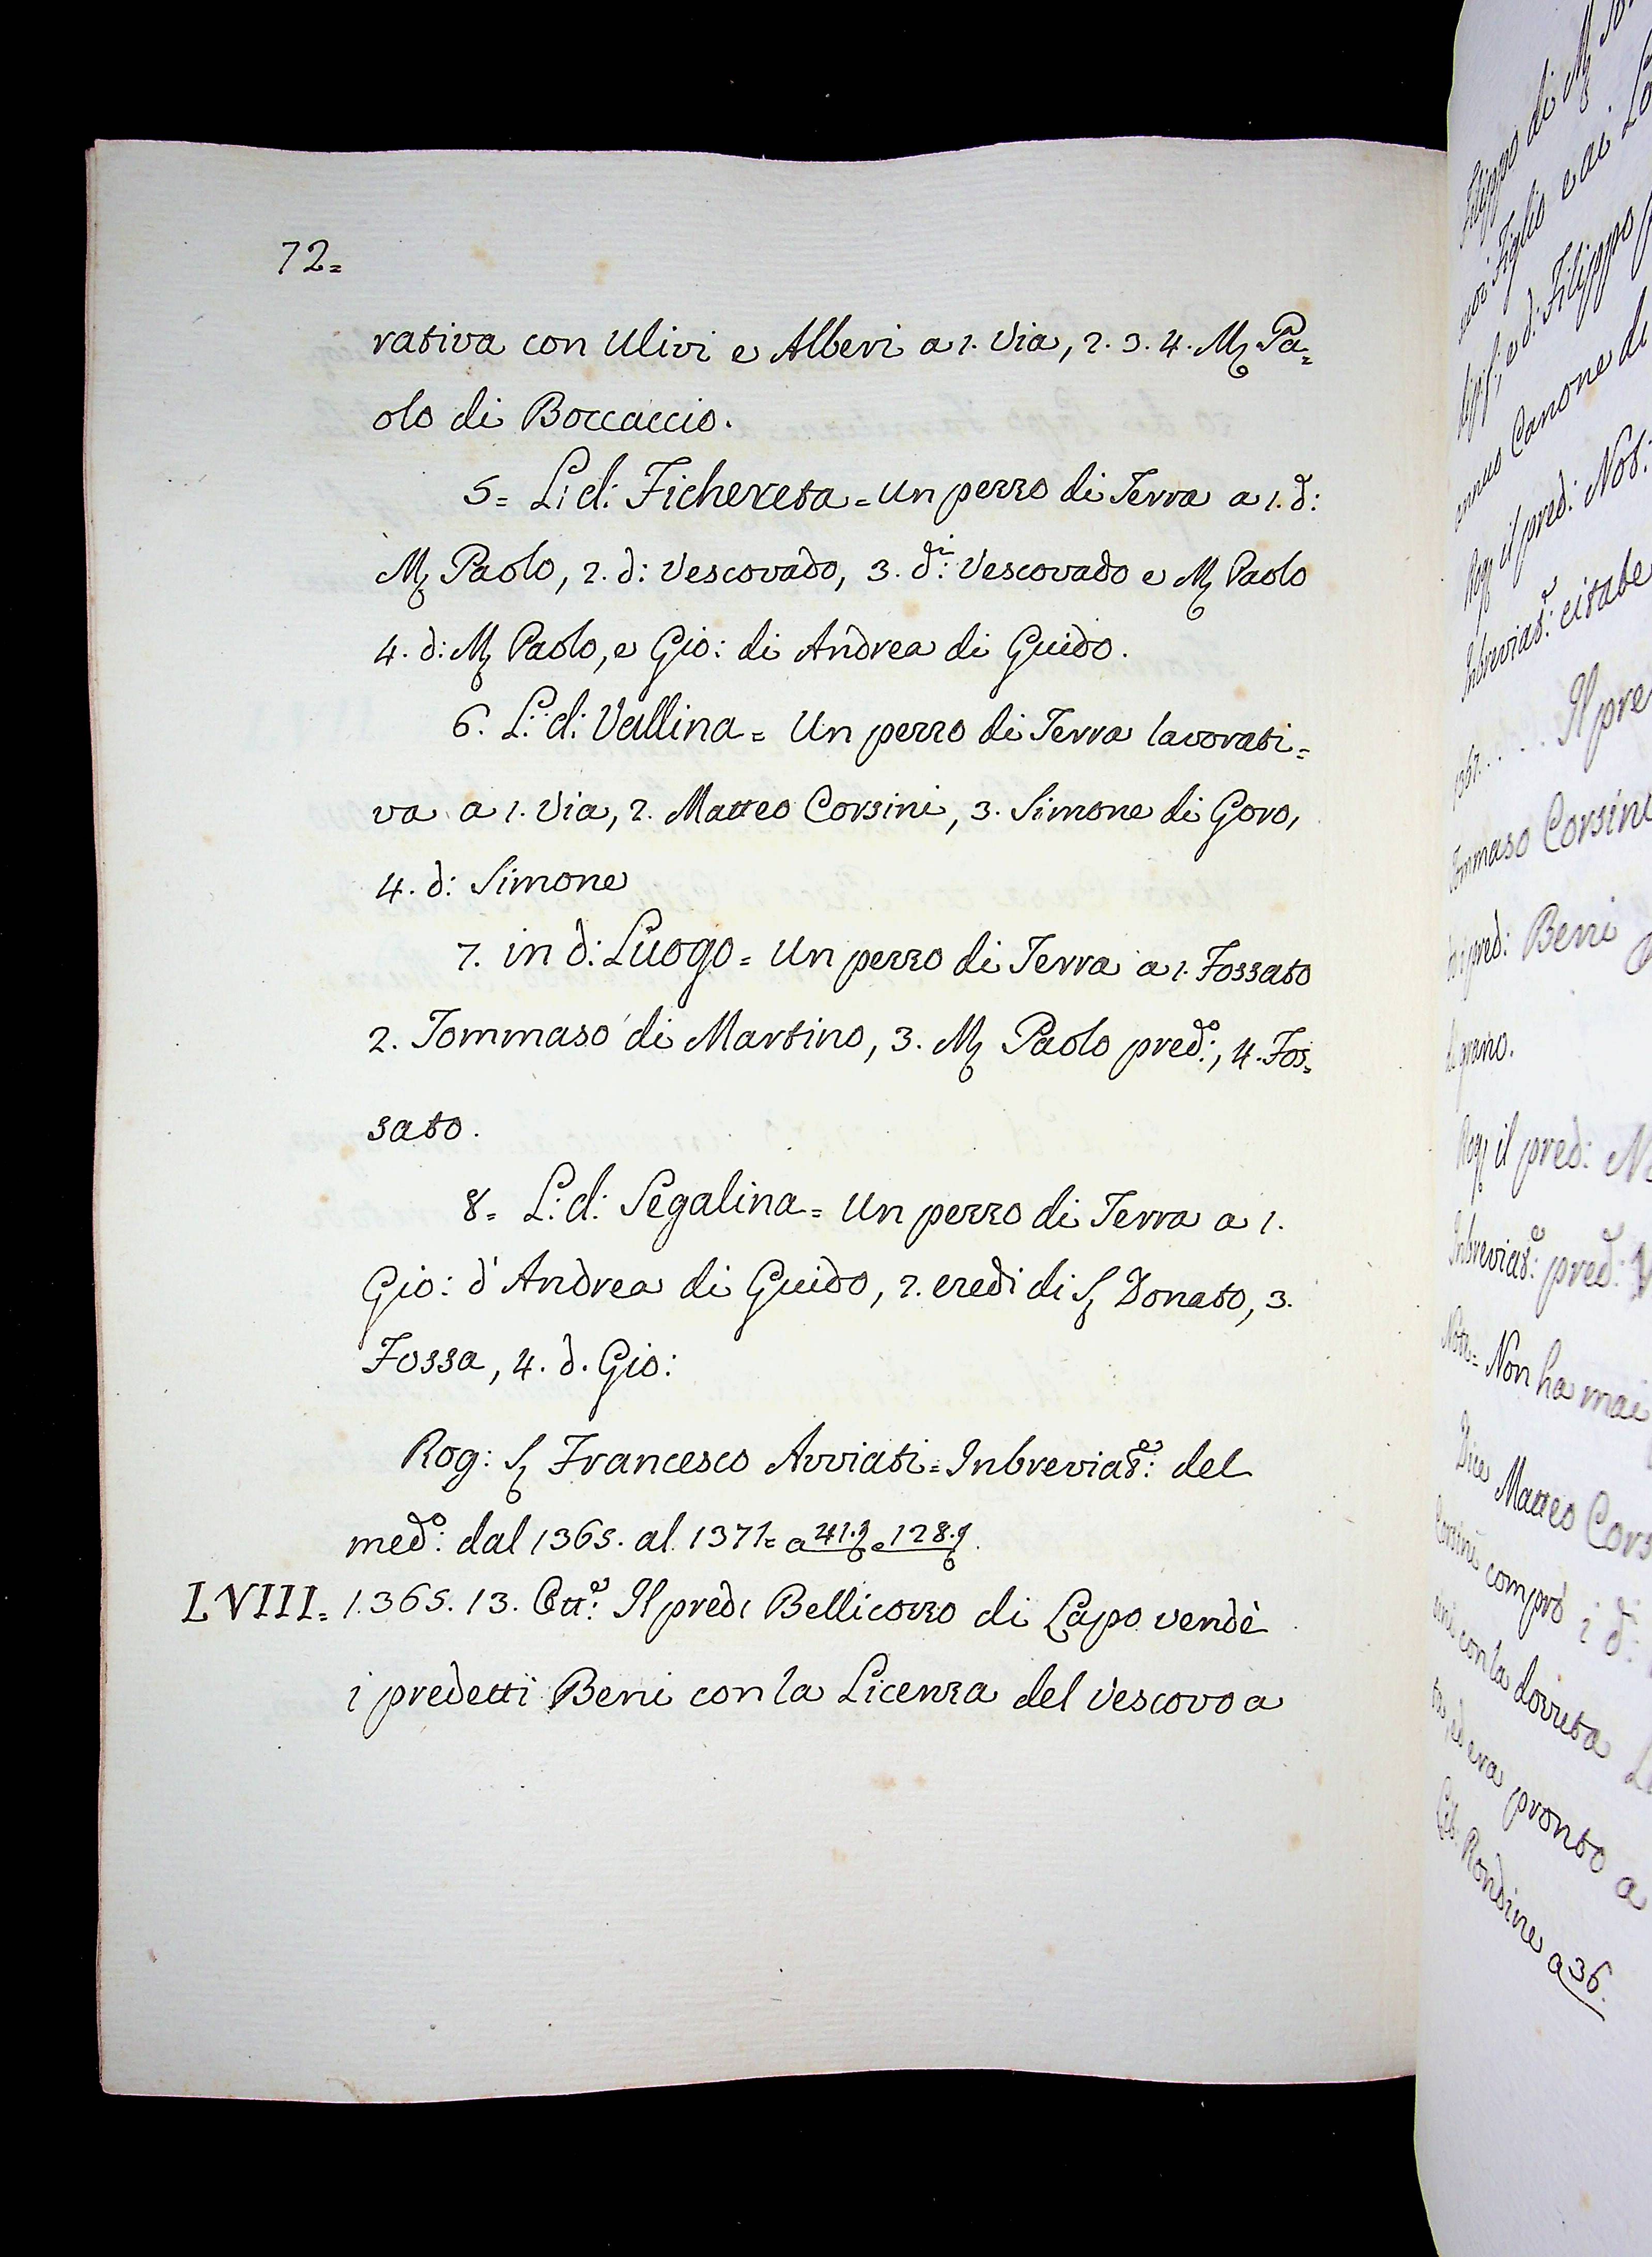 72=
rativa con Ulivi e Alberi a 1. Via, 2. 3. 4. M Pa=
olo di Boccaccio.
5= L: d: Fichereta = un pezzo di Terra a 1. d:
M Paolo, 2. d: Vescovado, 3. d.i: Vescovado e M Paolo
4. d: M Paolo, e Gio: di Andrea di Guido.
6. L: d: Vallina = Un pezzo di Terra lavorati=
va a 1. Via, 2. Matteo Corsini, 3. Simone di Goro,
4. d: Simone
7. in d: Luogo = Un pezzo di Terra a 1. Fossato
2. Tommaso di Martino, 3. M Paolo pred.o:, 4. Fos=
sato.
8= L: d: Segalina = Un pezzo di Terra a 1.
Gio: d'Andrea di Guido, 2. eredi di S Donato, 3.
Fossa, 4. d. Gio:
Rog: S Francesco Avviati = Inbreviat.e: del
med.o: dal 1365. al 1371= a 41. e 128.
LVIII= 1365. 13. Ott.e: Il pred: Bellicozzo di Lapo vendè
i predetti Beni con la Licenza del Vescovo a
Filippo di M
Figlio e ai
e d: Filippo
Canone di
Rog il pred: Not:
Inbreviat.e: citate
1367. . . . Il pre
Tommaso Corsini
pred: Beni
grano.
Rog il pred:
Inbreviat.e: pred.e:
Note= Non ha mai
Dice Matteo Cors
Corsini comprò i d:
con la dovuta
era pronto a
Rondine a 36.